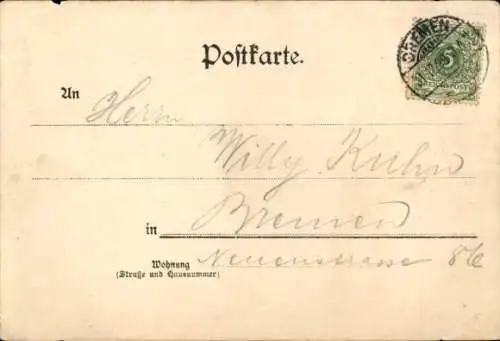 Postkarte.
BREMEN
5
REICHSPOST
An Herrn
Willy Kuhn
in Bremen
Wohnung
(Straße und Hausnummer)
Neuenstrasse